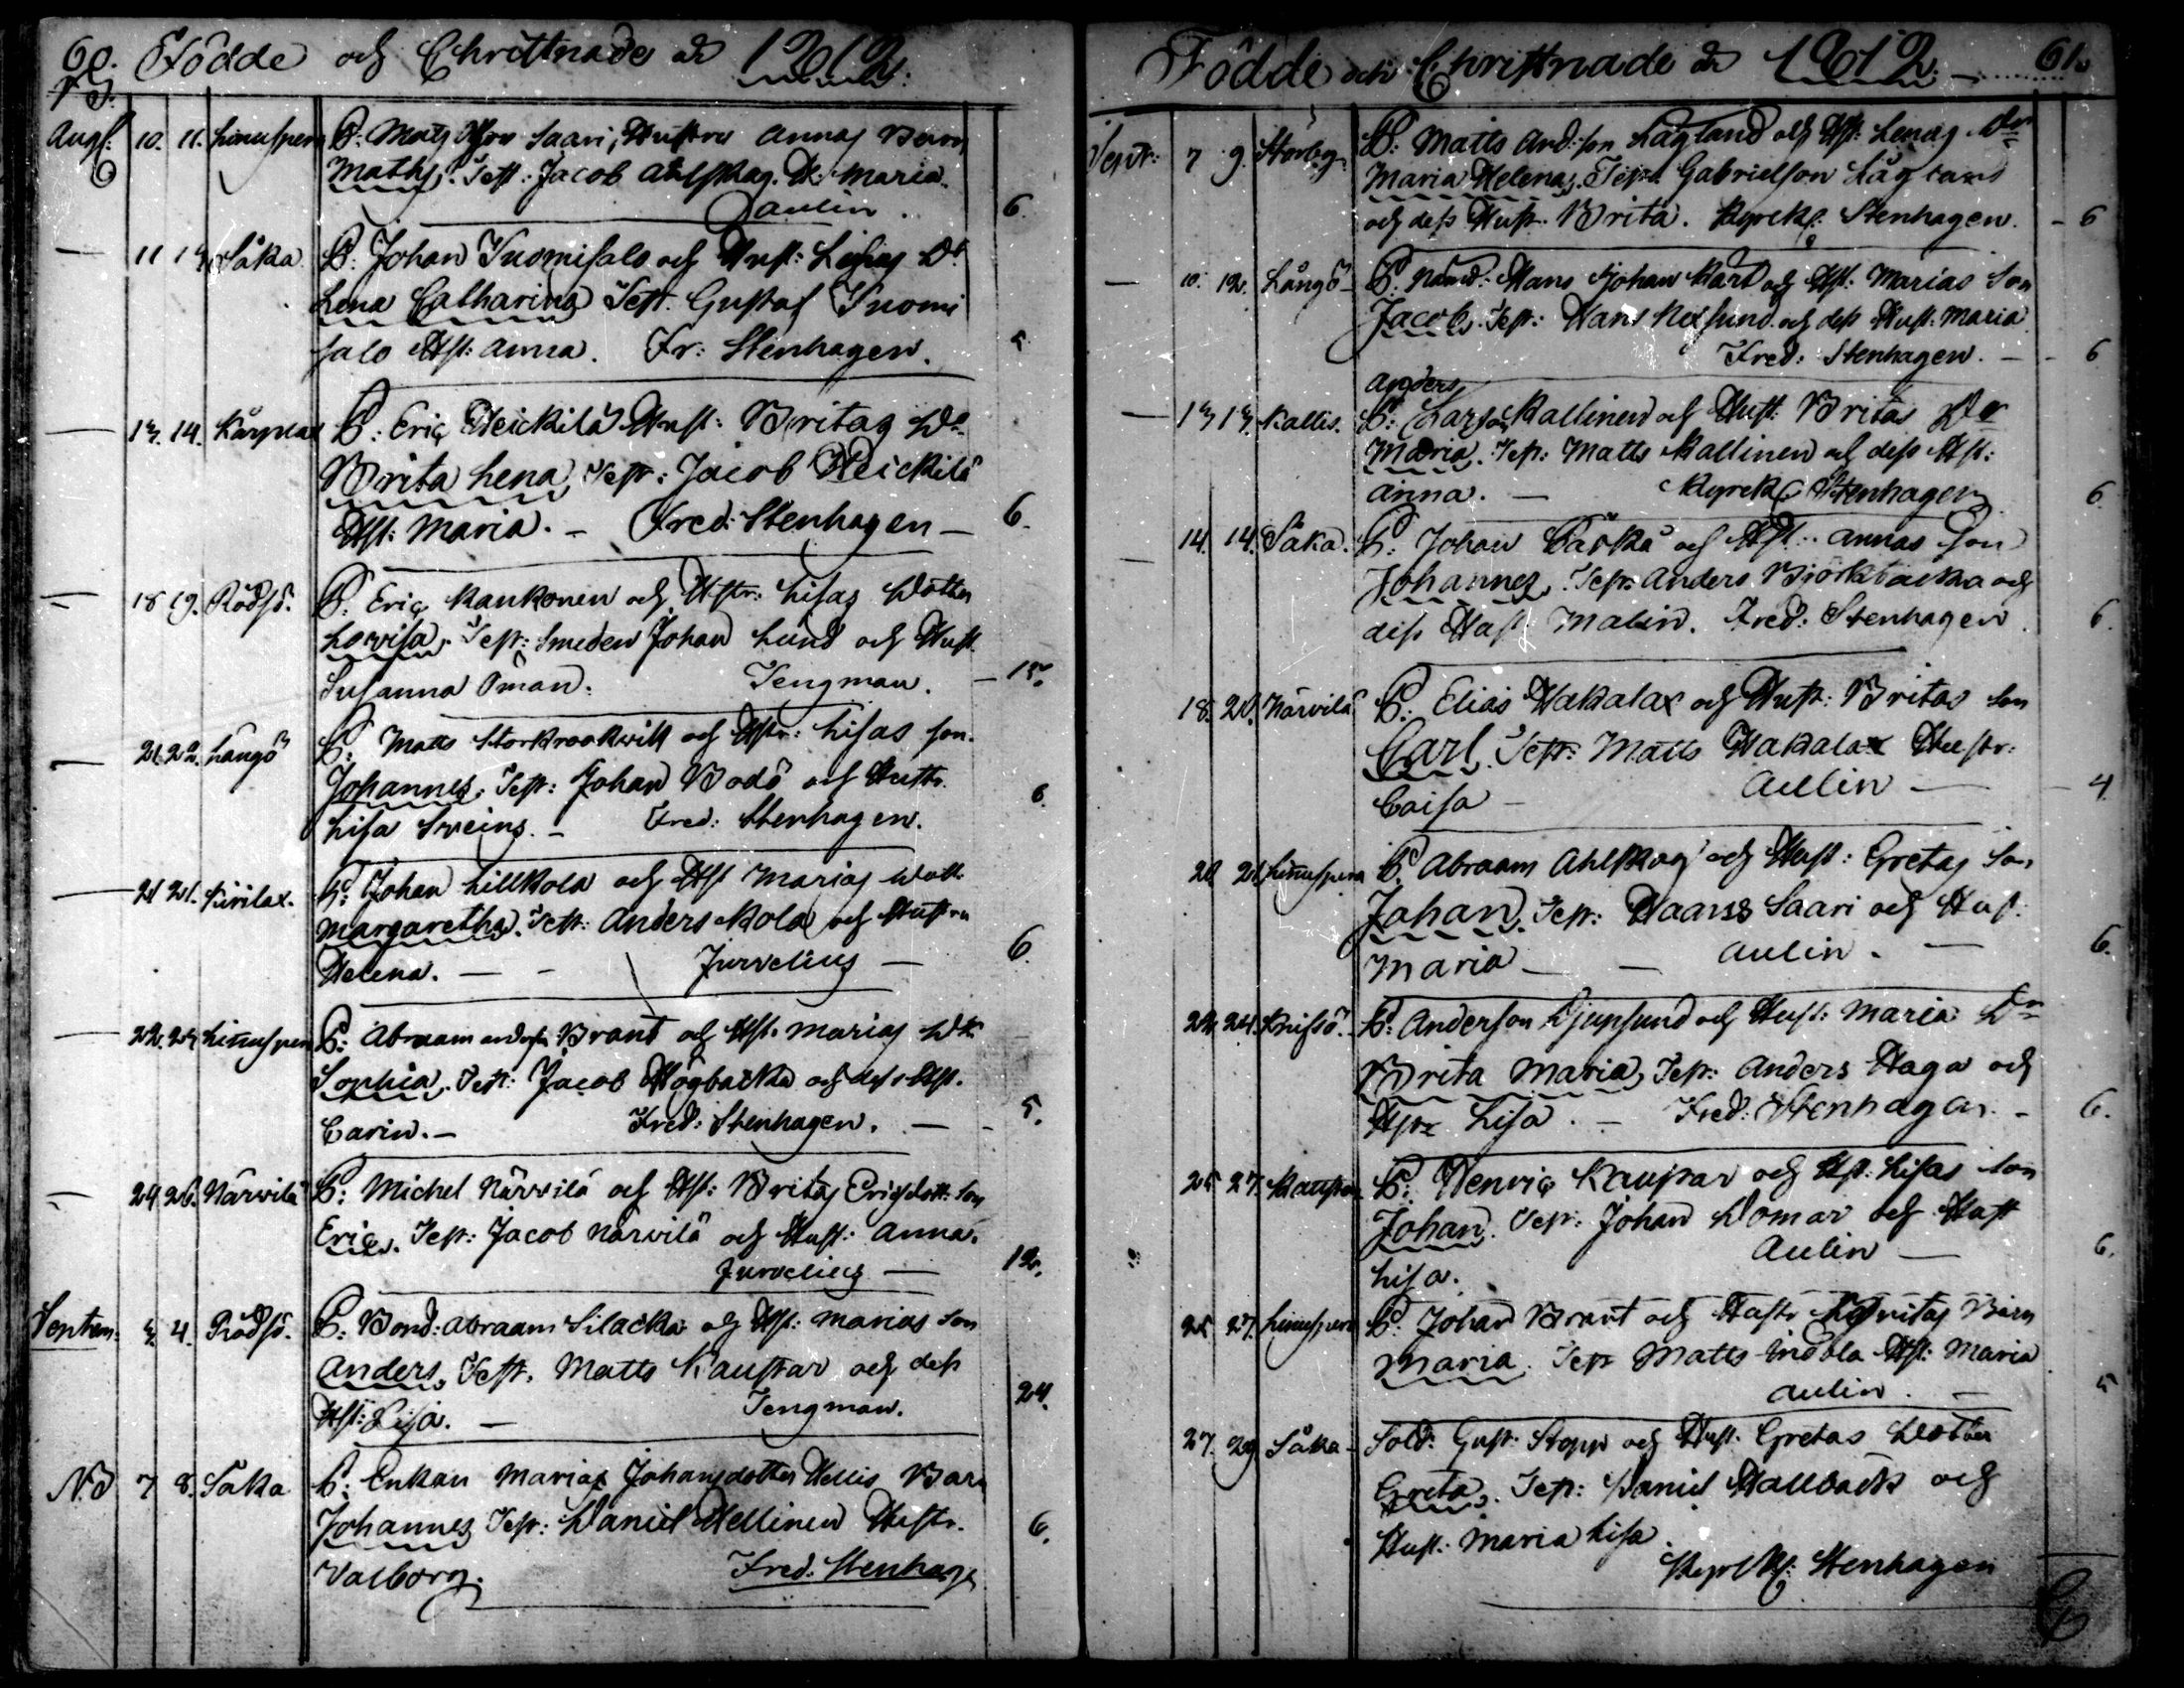 60. Födde och Christnade år 1812.
Aug: 10. 11. Linnuspera B: Mats Saari, Hustru Annas Barn
Maths. Test: Jacob Ahlskog. D. Maria.
Aulin. 6.
— 11 13 Såka B: Johan Tuomisalo och Hust: Lisas Dr
Lena Catharina Test. Gustaf Tuomi
salo Hst: Anna. Fr: Stenhagen. 5
— 13. 14. Karplax B: Eric Heickilä Hust: Britas Dr
Brita Lena, Test: Jacob Heickilä
Hst: Maria. — Fred: Stenhagen — 6.
— 18 19. Rödsö. B: Eric Kankonen och Hstr: Lisas Dotter
Lovisa. Test: Smeden Johan Lund och Hust.
Susanna Öman. Tengman. — 12.
— 21. 22. Långö B: Matts Storkraakwik och Hstr: Lisas son.
Johannes. Test: Johan Bodö och Hustr. 6.
Lisa Sveins. — Fred: Stenhagen.
— 21 21. Kirilax. B: Johan Lillkola och Hst Marias Dott.
Margaretha. Test: Anders Kola och Hustru
Helena. — — Jurvelius — 6.
— 22. 23 Linnuspera B: Abraam Brant och Hst. Marias Dr
Sophia. Test: Jacob Högbacka och dess Hst.
Carin. — Fred: Stenhagen. — 5.
— 24 26. Närvilä B: Michel Närvilä och Hst: Britas Ericsdott: son
Eric. Test: Jacob Närvilä och Hust: Anna.
Jurvelius — 12.
Septem: 3. 4. Rödsö. B: Bond: Abraam Silacka och Hst: Marias Son
Anders. Test. Matts Kaustar och dess
Hst: Lisa. — Tengman. 24.
N.B 7 8. Såka B: Enkan Marias Johansdotter Hellis Barn
Johannes Test: Daniel Hellinen Hustr. 6.
Valborg. Fred: Stenhage
Födde och Christnade år 1812. — 61.
Sept: 7 9. Storby B: Matts And:son Lagland och Hst: Lenas Dr
Maria Helena. Test. Gabrielson Lagland
och dess Hust. Brita. Kyrck: Stenhagen. — 6
— 10. 12. Långö — B. Nämd: Hans Johan Kart och Hst: Marias Son
Jacob. Test: Hans Kolsund. och dess Hust: Maria
Fred: Stenhagen. — — 6
Anders
— 13 13. Kallis. B: Larson Kallinen och Hust: Britas Dr
Maria. Test: Matts Kallinen och dess Hst:
Anna. — Kyrck: Stenhagen 6.
14. 14. Såka. B: Johan Backa och Hst: Annas Son
Johannes. Test: Anders Biörkbacka och
dess Hust Malin. Fred: Stenhagen 6.
18. 20. Närvilä B: Elias Hakalax och Hust: Britas Son
Carl. Test: Matts Hakalax Hustr:
Caisa — Aulin — — 4.
20 21. Linnuspera B: Abraam Ahlskog och Hust: Gretas Son
Johan. Test: Haans Saari och Hust.
Maria — — Aulin. — 6.
24. Knifsö. B: Anderson Djupsund och Hust: Maria Dr
Brita Maria. Test: Anders Haga och
Hstr Lisa. — Fred: Stenhagen. — 6.
25 27. Kaustar B: Henric Kaustar och Hst: Lisas Son
Johan. Test: Johan Domar och Hust
Lisa. Aulin — 6.
25 27. Linnuspera B: Johan Brant och Hustr Barn
Maria. Test Matts Indola Hst: Maria
Aulin. — 5
27. 29. Såka — Sold. Gust. Stopp och Hust. Gretas Dotter
Greta. Test: Daniel Hallback och
Hust: Maria Lisa.
Kyrck: Stenhagen